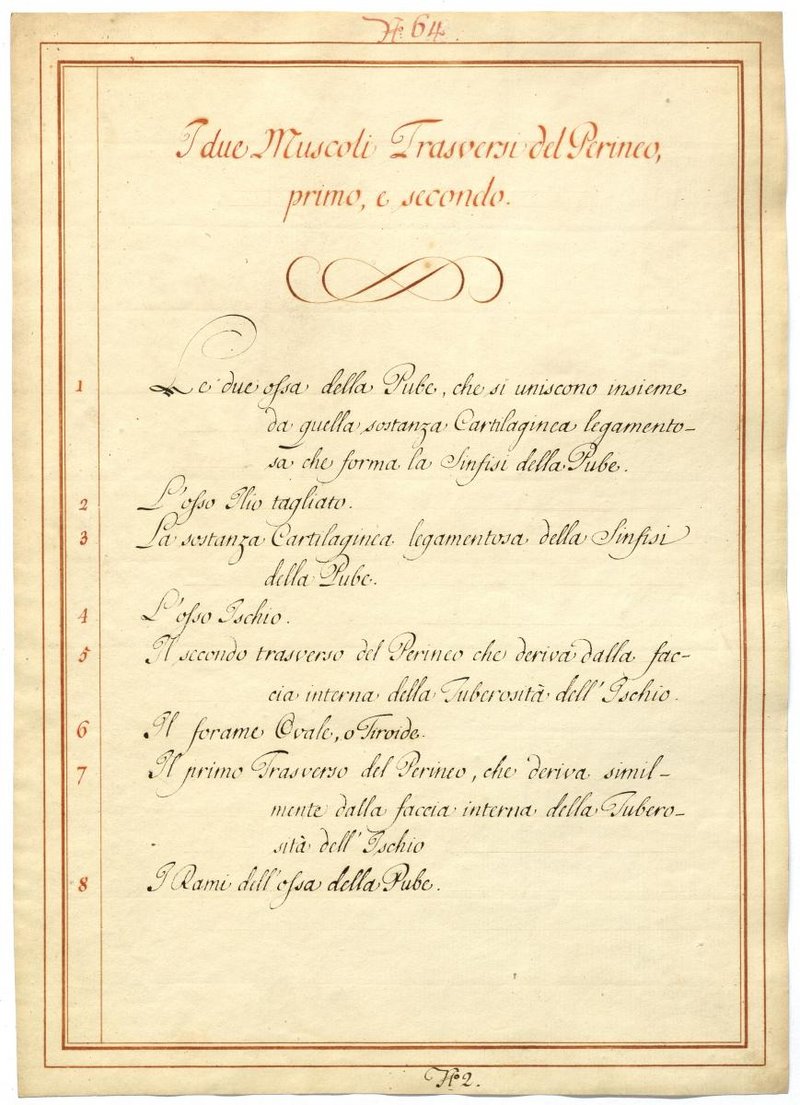 No. 64.
I due Muscoli Trasversi del Perineo,
primo, e secondo.
1 Le due ossa della Pube, che si uniscono insieme
da quella sostanza Cartilaginea legamento-
sa che forma la Sinfisi della Pube.
2 L'osso Ilio tagliato.
3 La sostanza Cartilaginea legamentosa della Sinfisi
della Pube.
4 L'osso Ischio.
5 Il secondo trasverso del Perineo che deriva dalla fac-
cia interna della Tuberosità dell'Ischio.
6 Il forame Ovale, o Tiroide.
7 Il primo Trasverso del Perineo, che deriva simil-
mente dalla faccia interna della Tubero-
sità dell'Ischio
8 I Rami dell'ossa della Pube.
No. 2.